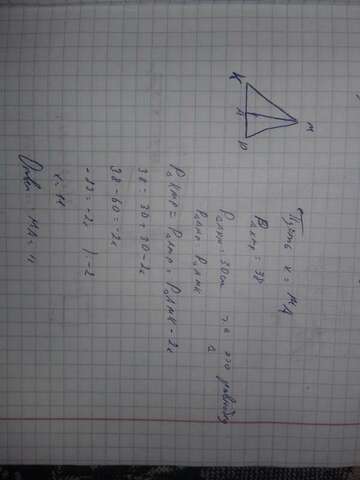 K
A
P
M
Пусть x = MA
P△KMP = 38
P△AKM = 30 см т.к это равнобед
P△AMP P△AMK
P△KMP = P△AMP + P△AMK - 2x
38 = 30 + 30 - 2x
38 - 60 = -2x
-22 = -2x | -2
x = 11
Ответ MA = 11